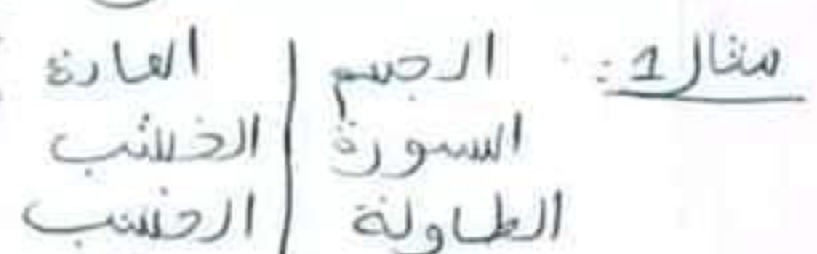 مثال 1: الجسم | المادة
السبورة | الخشب
الطاولة | الخشب